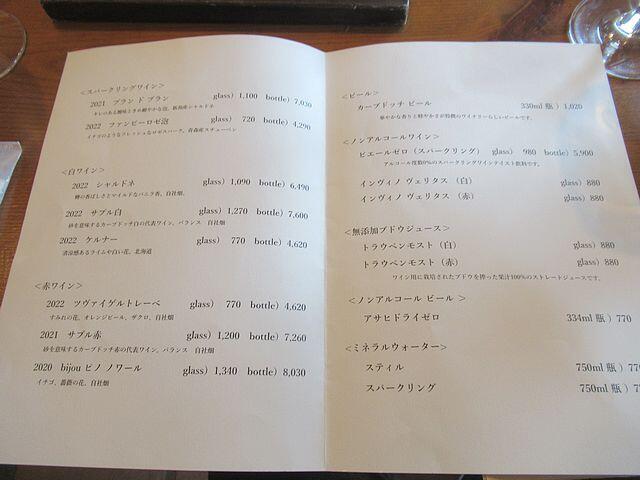 <スパークリングワイン>
2021 ブラン ド ブラン glass）1,100 bottle）7,030
キレのある酸味ときめ細やかな泡、新潟産シャルドネ
2022 ファンピーロゼ泡 glass） 720 bottle）4,290
イチゴのようなフレッシュなロゼスパーク、青森産スチューベン
<白ワイン>
2022 シャルドネ glass）1,090 bottle）6,490
樽の香ばしさとマイルドなバニラ香、自社畑、
2022 サブル白 glass）1,270 bottle）7,600
砂を意味するカーブドッチ白の代表ワイン、バランス 自社畑
2022 ケルナー glass） 770 bottle）4,620
清涼感あるライムや白い花、北海道
<赤ワイン>
2022 ツヴァイゲルトレーベ glass） 770 bottle）4,620
すみれの花、オレンジピール、ザクロ、自社畑
2021 サブル赤 glass）1,200 bottle）7,260
砂を意味するカーブドッチ赤の代表ワイン、バランス 自社畑
2020 bijou ピノ ノワール glass）1,340 bottle）8,030
イチゴ、薔薇の花、自社畑
<ビール>
カーブドッチ ビール 330ml 瓶）1,020
華やかな香りと軽やかさが特徴のワイナリーらしいビールです。
<ノンアルコールワイン>
ピエールゼロ（スパークリング） glass） 980 bottle）5,900
アルコール度数0%のスパークリングワインテイスト飲料です。
インヴィノ ヴェリタス （白） glass）880
インヴィノ ヴェリタス （赤） glass）880
<無添加ブドウジュース>
トラウベンモスト（白） glass）880
トラウベンモスト（赤） glass）880
ワイン用に栽培されたブドウを搾った果汁100%のストレートジュースです。
<ノンアルコール ビール >
アサヒドライゼロ 334ml 瓶 ）770
<ミネラルウォーター>
スティル 750ml 瓶 ）77
スパークリング 750ml 瓶 ）7